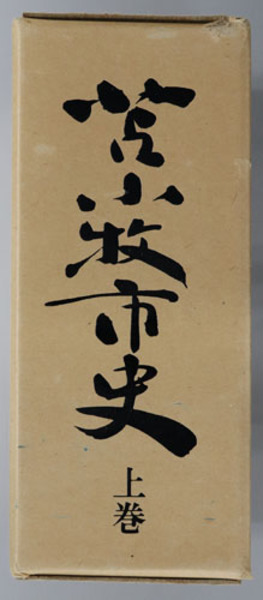 苫小牧市史
上巻